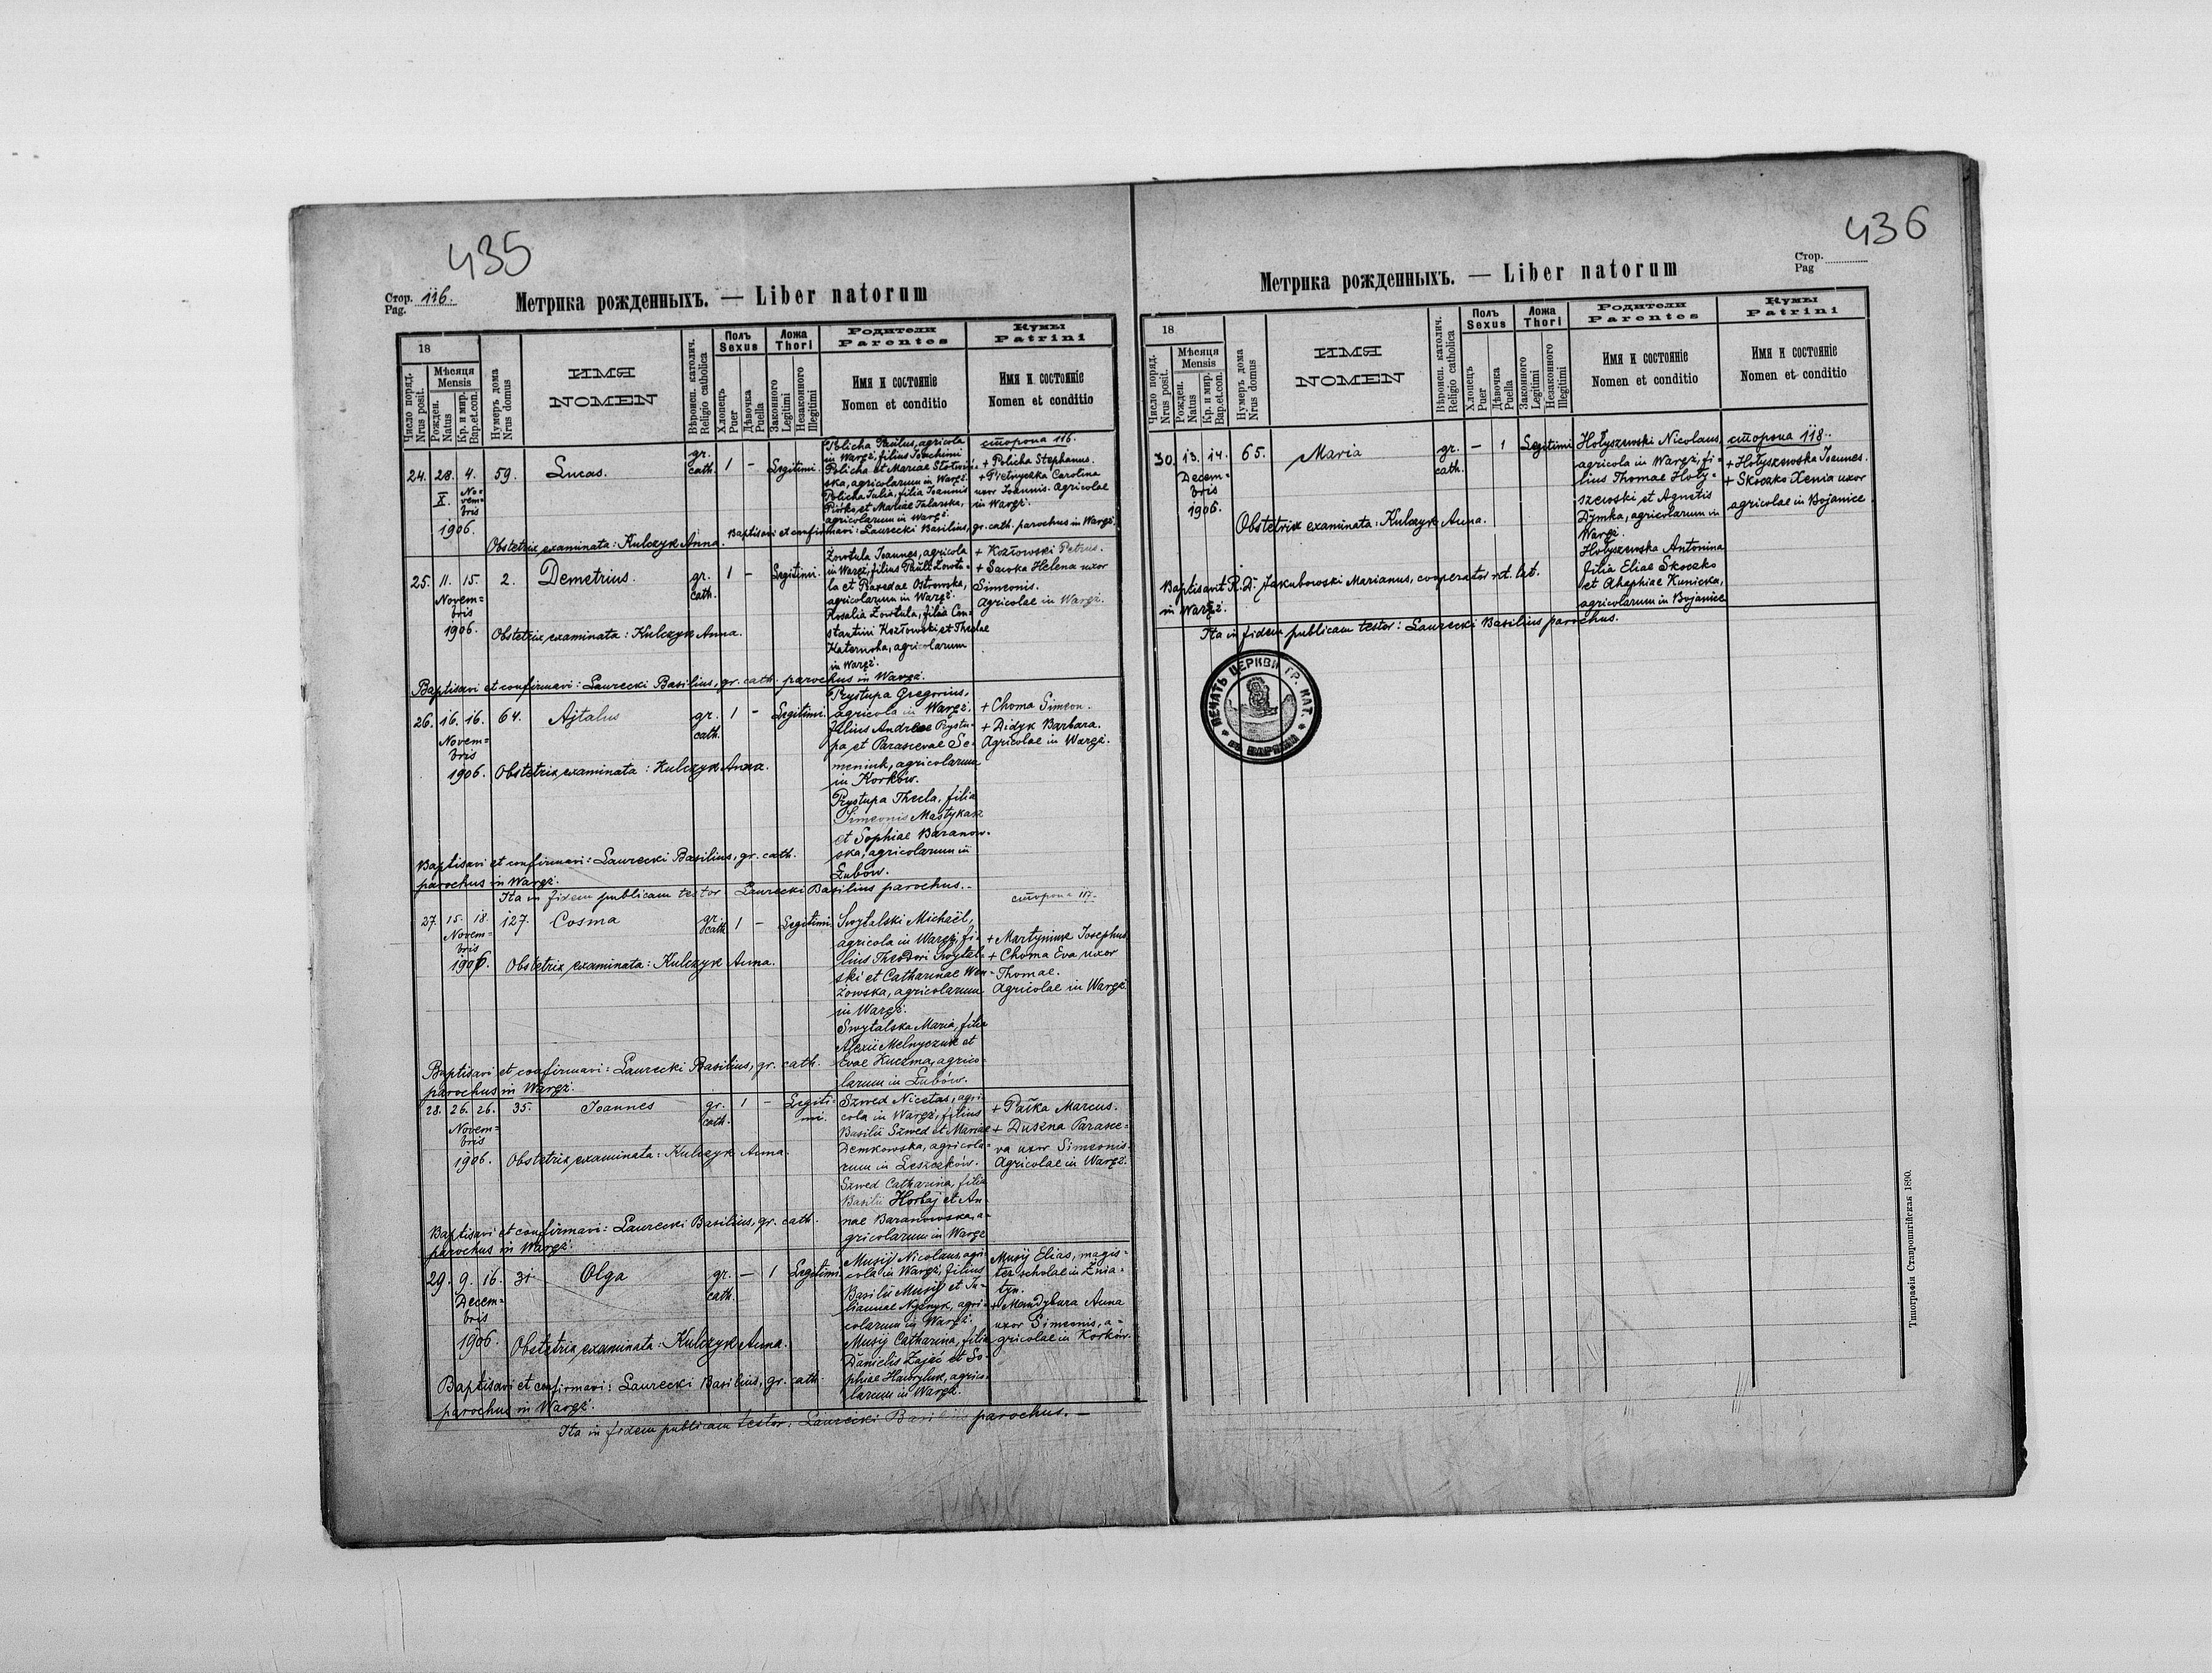 435
Стор. 116.
Pag.
Метрика рожденныхъ. — Liber natorum
18
Число поряд.
Nrus posit.
Мѣсяця
Mensis
Рожден.
Natus
Кр. и мир.
Bap.et.con.
Нумеръ дома
Nrus domus
ИМЯ
NOMEN
Вѣроисп. католич.
Religio catholica
Полъ
Sexus
Хлопець
Puer
Дѣвочка
Puella
Ложа
Thori
Законного
Legitimi
Незаконного
Illegitimi
Родители
Parentes
Имя и состояніе
Nomen et conditio
Кумы
Patrini
Имя и состояніе
Nomen et conditio
24. 28. 4. 59. Lucas. gr. cath. 1 – Legitimi.
X. No=
vem=
bris
1906.
Policha Paulus, agricola
in Waręż, filius Joachimi
Policha et Mariae
ska, agricolarum in Waręż.
Policha Julia, filia Joannis
Pirko et Mariae Talarska,
agricolarum in Waręż.
сторона 116.
+ Policha Stephanus.
+ Carolina
uxor Joannis. Agricolae
in Waręż.
Obstetrix examinata: Kulczyk Anna. Baptisavi et confirmavi: Laurecki Basilius, gr. cath. parochus in Waręż.
25. 11. 15. 2. Demetrius. gr. cath. 1 – Legitimi.
Novem=
bris
1906. Obstetrix examinata: Kulczyk Anna.
Zowtula Joannes, agricola
in Waręż, filius Pauli Zowtu-
la et Praxedae Ostrowska,
agricolarum in Waręż.
Rosalia Zowtula, filia Con-
stantini Kozłowski et Theclae
Katernoha, agricolarum
in Waręż.
+ Kozłowski Petrus.
+ Sawka Helena uxor
Simeonis.
Agricolae in Waręż.
Baptisavi et confirmavi: Laurecki Basilius, gr. cath. parochus in Waręż.
26. 16. 16. 64. Ajtalus gr. cath. 1 – Legitimi.
Novem=
bris
1906. Obstetrix examinata: Kulczyk Anna.
Prystupa Gregorius,
agricola in Waręż,
filius Andreae Prystu-
pa et Parascevae Se-
meniuk, agricolarum
in Korków.
Prystupa Thecla, filia
Simeonis Mastykasz
et Sophiae Baranow-
ska, agricolarum in
Łubów.
+ Choma Simeon.
+ Didyk Barbara.
Agricolae in Waręż.
Baptisavi et confirmavi: Laurecki Basilius, gr. cath.
parochus in Waręż.
Ita in fidem publicam testor Laurecki Basilius parochus.–
сторона 117.
27. 15. 18. 127. Cosma gr. cath. 1 – Legitimi.
Novem=
bris
1906. Obstetrix examinata: Kulczyk Anna.
Swytalski Michaël,
agricola in Waręż, fi-
lius Theodori Swytal-
ski et Catharinae Wen-
żowska, agricolarum
in Waręż.
Swytalska Maria, filia
Alexii Melnyczuk et
Evae Kuczma, agrico-
larum in Łubów.
+ Martyniuk Josephus
+ Choma Eva uxor
Thomae.
Agricolae in Waręż.
Baptisavi et confirmavi: Laurecki Basilius, gr. cath.
parochus in Waręż.
28. 26. 26. 35. Joannes gr. cath. 1 – Legiti-
mi.
Novem=
bris
1906. Obstetrix examinata: Kulczyk Anna.
Szwed Nicetas, agri-
cola in Waręż, filius
Basilii Szwed et Mariae
Demkowska, agricola-
rum in Leszczków.
Szwed Catharina, filia
Basilii Horbaj et An-
nae Baranowska, a-
gricolarum in Waręż
+ Pałka Marcus.
+ Duszna Parasce-
va uxor Simeonis.
Agricolae in Waręż.
Baptisavi et confirmavi: Laurecki Basilius, gr. cath.
parochus in Waręż.
29. 9. 16. 31 Olga gr. cath. – 1 Legitimi.
Decem=
bris
1906. Obstetrix examinata: Kulczyk Anna.
Musij Nicolaus, agri-
cola in Waręż, filius
Basilii Musij et Ju-
liannae agri-
colarum in Waręż.
Musij Catharina, filia
Danielis Zajść et So-
phiae Hawryluk, agrico-
larum in Waręż.
Musij Elias, magis-
ter scholae in Żnia-
tyn.
+ Mandybura Anna
uxor Simeonis, a-
gricolae in Korków.
Baptisavi et confirmavi: Laurecki Basilius, gr. cath.
parochus in Waręż.
Ita in fidem publicam testor: Laurecki Basilius parochus.–
436
Стор.
Pag
Метрика рожденныхъ. — Liber natorum
18
Число поряд.
Nrus posit.
Мѣсяця
Mensis
Рожден.
Natus
Кр. и мир.
Bap.et.con.
Нумеръ дома
Nrus domus
ИМЯ
NOMEN
Вѣроисп. католич.
Religio catholica
Полъ
Sexus
Хлопець
Puer
Дѣвочка
Puella
Ложа
Thori
Законного
Legitimi
Незаконного
Illegitimi
Родители
Parentes
Имя и состояніе
Nomen et conditio
Кумы
Patrini
Имя и состояніе
Nomen et conditio
30. 13. 14. 65. Maria gr. cath. – 1 Legitimi
Decem=
bris
1906. Obstetrix examinata: Kulczyk Anna.
Hołyszewski Nicolaus,
agricola in Waręż, fi-
lius Thomae Hoły-
szewski et Agnetis
Dymka, agricolarum in
Waręż.
Hołyszewska Antonina
filia Eliae Skoczko
et Ahaphiae Kunicka,
agricolarum in Bojanice
сторона 118.
+ Hołyszewska Joannes.
+ Skoczko Xenia uxor
agricolae in Bojanice.
Baptisavit R. D. Jakubowski Marianus, cooperator rit. lat.
in Waręż.
Ita in fidem publicam testor: Laurecki Basilius parochus.
ПЕЧАТЬ ЦЕРКВИ ГР. КАТ.
Типографія Ставропигійская 1890.